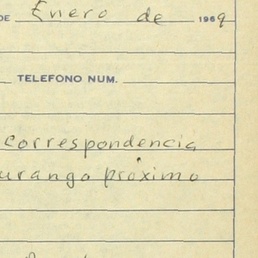 DE Enero de 1969
TELEFONO NUM.
correspondencia
urango próximo